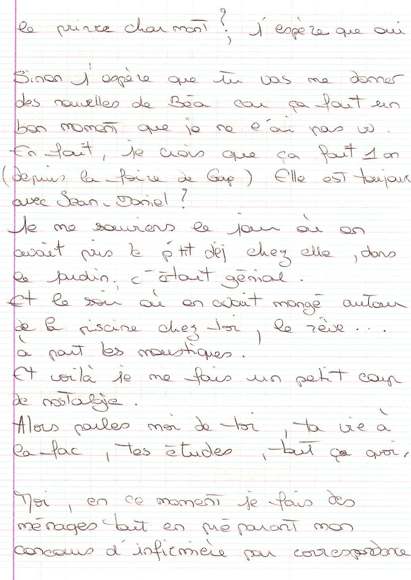 le prince charmant ?, j'espère que oui
Sinon j'espère que tu vas me donner
des nouvelles de Béa car ça fait un
bon moment que je ne l'ai pas vu.
En fait, je crois que ça fait 1 an
(depuis la foire de Gap) Elle est toujours
avec Jean-Daniel ?
Je me souviens le jour où on
avait pris le p'tit déj chez elle, dans
le jardin, c'était génial.
Et le soir où on avait mangé autour
de la piscine chez toi, le rêve...
à part les moustiques.
Et voilà je me fais un petit coup
de nostalgie.
Alors parles moi de toi, ta vie à
la fac, tes études, tout ça quoi,
Moi, en ce moment je fais des
ménages tout en préparant mon
concours d'infirmière par correspondance